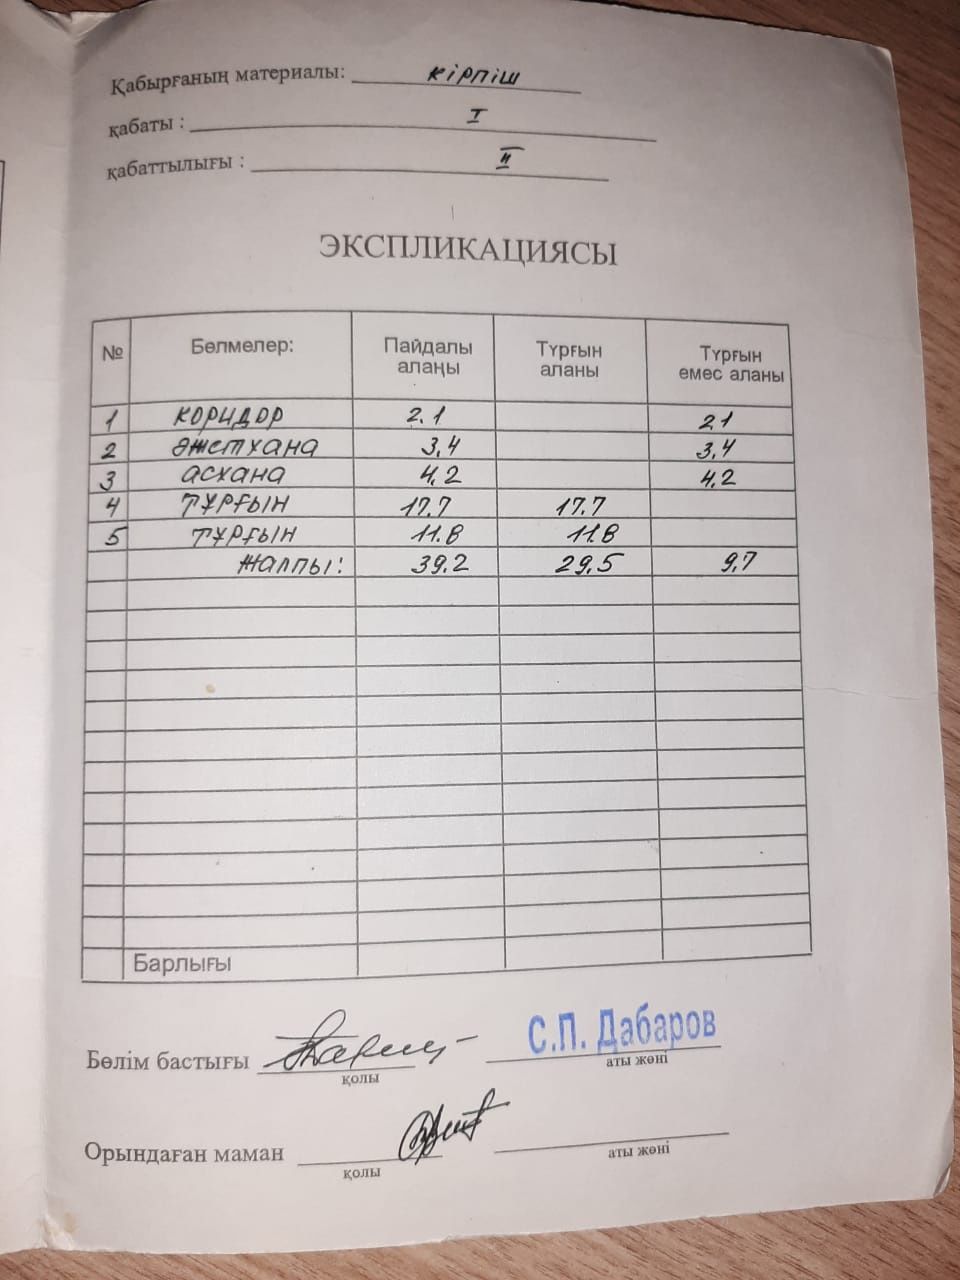 Қабырғаның материалы: кірпіш
қабаты : I
қабаттылығы : II
ЭКСПЛИКАЦИЯСЫ
№ Бөлмелер: Пайдалы алаңы Тұрғын аланы Тұрғын емес аланы
1 коридор 2.1 2.1
2 әжетхана 3,4 3,4
3 асхана 4,2 4,2
4 тұрғын 17.7 17.7
5 тұрғын 11.8 11.8
жалпы: 39.2 29,5 9,7
Барлығы
Бөлім бастығы С.П. Дабаров
қолы аты жөні
Орындаған маман
қолы аты жөні